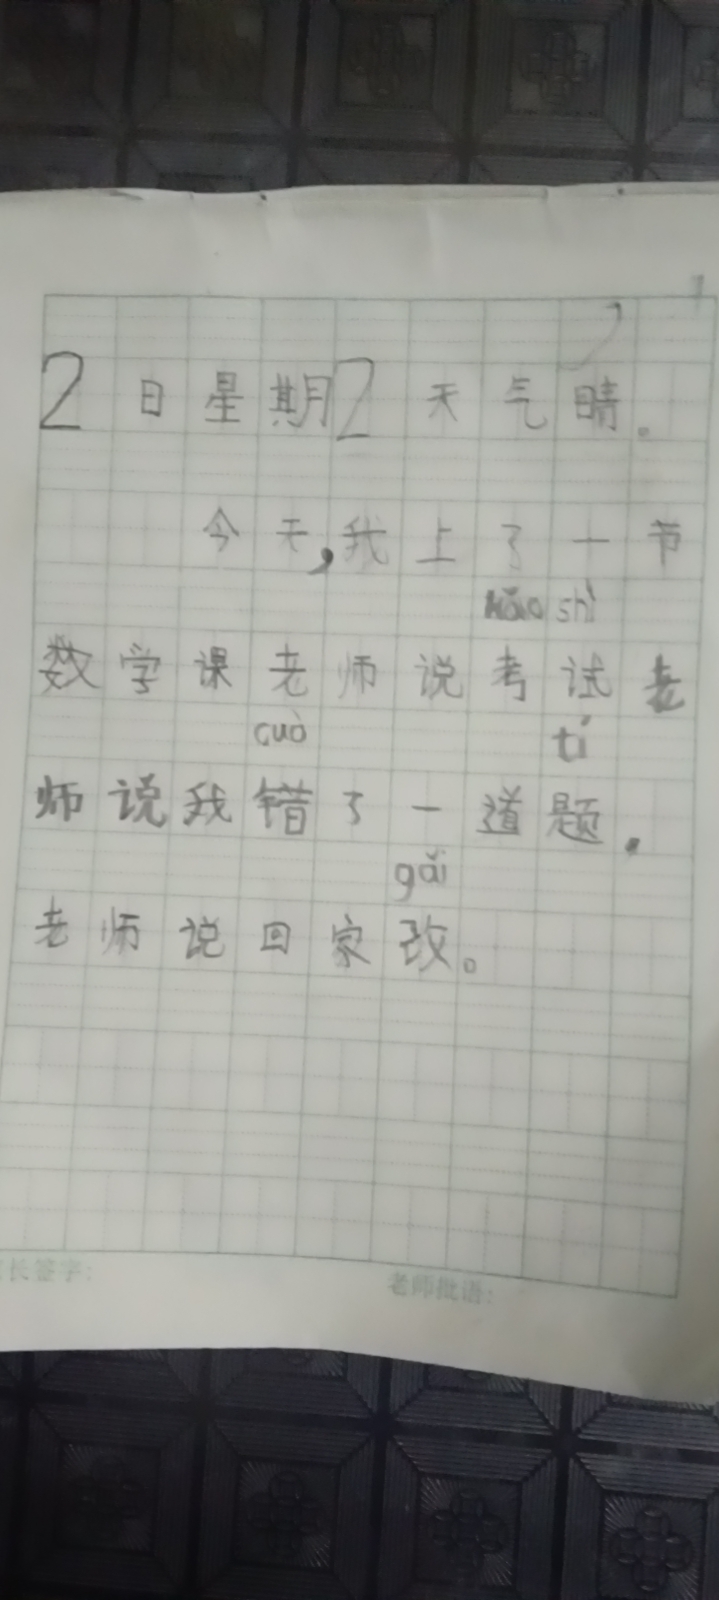 2日星期2天气晴。
今天,我上了一节
kǎo shì
数学课老师说考试老
cuò tí
师说我错了一道题.
gǎi
老师说回家改。
长签字: 老师批语: